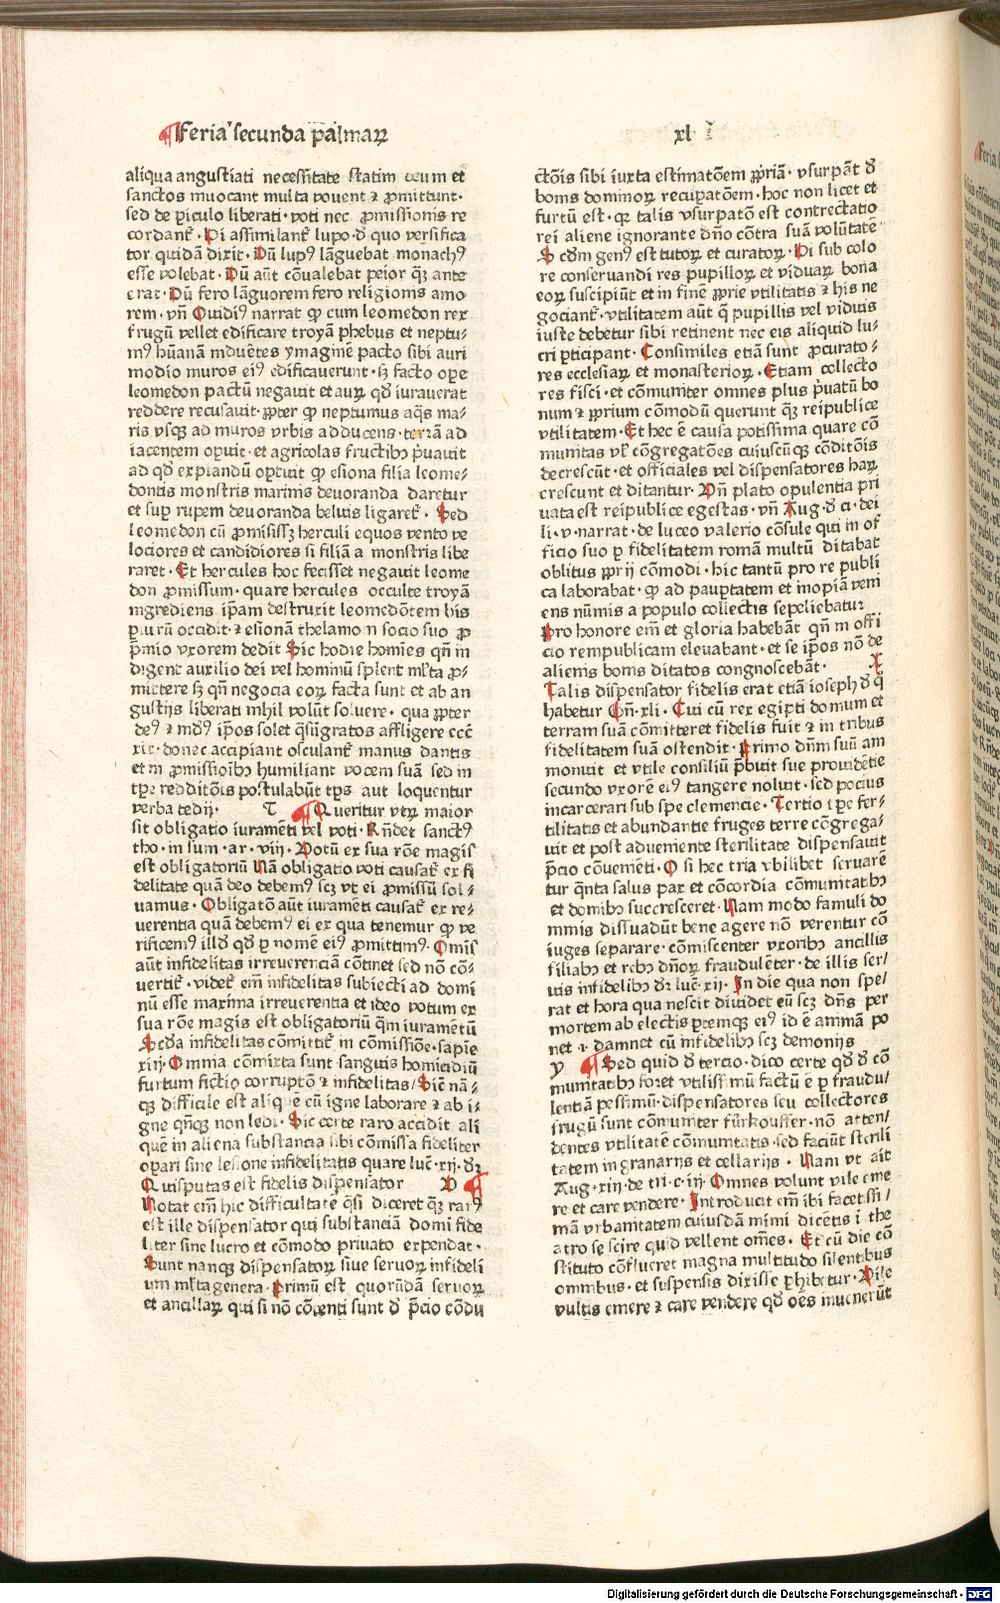 ¶Feria secunda palmaꝝ
xl i
aliqua angustiati necessitate statim deum et
sanctos inuocant multa vouent ⁊ ꝓmittunt·
sed de ꝑiculo liberati· voti nec ꝓmissionis re
cordant᷑· Hi assimilant᷑ lupo· ꝺ quo versifica
tor quidā dixit· Dū lupꝰ lāguebat monachꝰ
esse volebat· Dū aūt cōualebat peior qꝫ ante
erat· Dū fero lāguorem fero religionis amo
rem· vn̄ Ouidiꝰ narrat ꝙ cum leomedon rex
frugū vellet edificare troyā phebus et neptu-
nꝰ hūanā induētes ymaginē pacto sibi auri
modio muros eiꝰ edificauerunt· sꝫ facto oꝑe
leomedon pactū negauit et auꝝ qd̄ iurauerat
reddere recusauit· ꝓpter ꝙ neptumus aq̄s ma-
ris vsqꝫ ad muros vrbis adducens· terrā ad
iacentem oꝑuit· et agricolas fructibꝰ p̄uauit
ad qd̄ expiandū oꝑtuit ꝙ esiona filia leome-
dontis monstris marinis deuoranda daretur
et suꝑ rupem deuoranda beluis ligaret᷑· Sed
leomedon cū ꝓmisissꝫ herculi equos vento ve
lociores et candidiores si filiā a monstris libe
raret· Et hercules hoc fecisset negauit leome
don ꝓmissum· quare hercules occulte troyā
ingrediens ip̄am destruxit leomedōtem bis
plurū occidit· ⁊ esionā thelamon socio suo ꝓ
p̄mio vxorem dedit Sic hodie homīes qn̄ in
digent auxilio dei vel hominū splent ml̄ta ꝓ-
mittere sꝫ qn̄ negocia eoꝝ facta sunt et ab an
gustijs liberati nihil volūt soluere· qua ꝓpter
deꝰ ⁊ mūdꝰ ip̄os solet q̄si ingratos affligere ecc̄
xix· donec accipiant osculant᷑ manus dantis
et in ꝓmissiōibꝰ humiliant vocem suā sed in
tꝑe redditōis postulabūt tꝑs aut loquentur
verba tedij· T ¶Queritur vtꝝ maior
sit obligatio iuramēti vel voti· Rn̄det sanctꝰ
tho· in sum· ar· viij· Votū ex sua rōne magis
est obligatoriū Nā obligatio voti causat᷑ ex fi
delitate quā deo debemꝰ scꝫ vt ei ꝓmissū sol-
uamus· Obligatō aūt iuramēti causat᷑ ex re-
uerentia quā debemꝰ ei ex qua tenemur ꝙ ve
rificemꝰ illd̄ qd̄ ꝑ nomē eiꝰ ꝓmittimꝰ· Om̄is
aūt infidelitas irreuerenciā cōtinet sed nō cō-
uertit᷑· videt᷑ em̄ infidelitas subiecti ad domi
nū esse maxima irreuerentia et ideo votum ex
sua rōne magis est obligatoriū q̄m iuramētū
Scd̄a infidelitas cōmittit᷑ in cōmissiōe· sapiē
xiij· Omnia cōmixta sunt sanguis homicidiū
furtum fictio corruptō ⁊ infidelitas/ Siē nā-
qꝫ difficile est aliquē cū igne laborare ⁊ ab i-
gne qn̄qꝫ non ledi· Sic certe raro accidit ali
quē in aliena substancia sibi cōmissa fideliter
oꝑari sine lesione infidelitatis quare luc̄· xij· dꝛ
Quis putas est fidelis dispensator V ¶
Notat em̄ hic difficultatē q̄si diceret qꝫ rarꝰ
est ille dispensator qui substanciā domi fide
liter sine lucro et cōmodo priuato expendat·
Sunt nanqꝫ dispensatoꝝ siue seruoꝝ infideli
um ml̄ta genera· Primū est quorūdā seruoꝝ
et ancillaꝝ qui si nō cōtenti sunt ꝺ p̄cio cōdu
ctōis sibi iuxta estimatōem ꝓpriā· vsurpāt ꝺ
bonis dominoꝝ recuꝑatōem· hoc non licet et
furtū est· qꝫ talis vsurpatō est contrectatio
rei aliene ignorante dn̄o cōtra suā volūtatē
Scd̄m genꝰ est tutoꝝ et curatoꝝ· Hi sub colo
re conseruandi res pupilloꝝ et viduaꝝ bona
eoꝝ suscipiūt et in finē ꝓprie vtilitatis ⁊ his ne
gociant᷑· vtilitatem aūt q̄ pupillis vel viduis
iuste debetur sibi retinent nec eis aliquid lu-
cri ꝑticipant· Consimiles etiā sunt ꝓcurato-
res ecclesiaꝝ et monasterioꝝ· Etiam collecto
res fisci· et cōmuniter omnes plus p̄uatū bo
num ⁊ ꝓprium cōmodū querunt qꝫ reipublice
vtilitatem· Et hec ē causa potissima quare cō
munitas vl̄ cōgregatōes cuiuscūqꝫ cōditōis
decrescūt· et officiales vel dispensatores haꝝ
crescunt et ditantur· Vn̄ plato opulentia pri
uata est reipublice egestas· vn̄ Aug· ꝺ ci· dei
li· v· narrat· de luceo valerio cōsule qui in of
ficio suo ꝑ fidelitatem romā multū ditabat
oblitus ꝓprij cōmodi· hic tantū pro re publi
ca laborabat· ꝙ ad pauꝑtatem et inopiā veni
ens nūmis a populo collectis sepeliebatur
Pro honore em̄ et gloria habebāt qn̄ in offi
cio rempublicam eleuabant· et se ip̄os nō de
alienis bonis ditatos congnoscebāt· X
Talis dispensator fidelis erat etiā ioseph ꝺ q̄
habetur Gn̄· xli· Cui cū rex egipti domum et
terram suā cōmitteret fidelis fuit ⁊ in tribus
fidelitatem suā ostendit· Primo dn̄m suū am
monuit et vtile consiliū p̄buit sue prouidētie
secundo vxorē eiꝰ tangere noluit· sed pocius
incarcerari sub spe clemencie· Tertio tpe fer-
tilitatis et abundantie fruges terre cōgrega-
uit et post adueniente sterilitate dispensauit
p̄cio cōuenieti· O si hec tria vbilibet seruare
tur q̄nta salus pax et cōcordia cōmunitatibꝰ
et domibꝰ succresceret· Nam modo famuli do
minis dissuadūt bene agere nō verentur cō
iuges separare· cōmiscenter vxoribꝰ ancillis
filiabꝰ et rebꝰ dn̄oꝝ fraudulēter· de illis ser/
uis infidelibꝰ dꝛ luc̄· xij· In die qua non spe/
rat et hora qua nescit diuidet eū scꝫ dn̄s per
mortem ab electis ꝑtemqꝫ eiꝰ id ē animā po
net ⁊ damnet cū infidelibꝰ scꝫ demonijs
y ¶Sed quid ꝺ tercio· dico certe qd̄ ꝺ cō
munitatibꝰ foret vtilissimū factū ē ꝑ fraudu/
lentiā pessimū· dispensatores seu collectores
frugū sunt cōmuniter fürkouffer· nō atten/
dentes vtilitatē cōmunitatis· sed faciūt sterili
tatem in granarijs et cellarijs· Nam vt ait
Aug· xiij· de tri· c· iij· Omnes volunt vile eme
re et care vendere· Introducit em̄ ibi facetissi/
mā vrbanitatem cuiusdā mimi dicētis i the
atro se scire quid vellent om̄es· Et cū die cō
stituto cōflueret magna multitudo silentibus
omnibus· et suspensis dixisse ꝑhibetur· Vile
vultis emere ⁊ care vendere qd̄ oēs inuenerūt
Digitalisierung gefördert durch die Deutsche Forschungsgemeinschaft · DFG